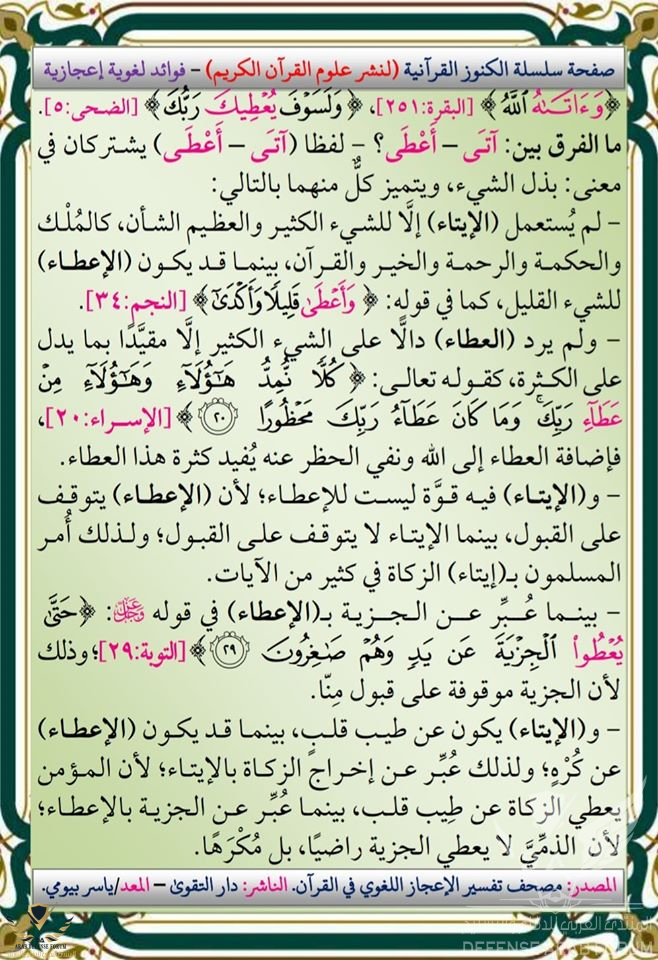 صفحة سلسلة الكنوز القرآنية (لنشر علوم القرآن الكريم) – فوائد لغوية إعجازية
﴿وَءَاتَىٰهُ ٱللَّهُ﴾ [البقرة:٢٥١]، ﴿وَلَسَوْفَ يُعْطِيكَ رَبُّكَ﴾ [الضحى:٥].
ما الفرق بين: آتَى – أَعْطَى؟ – لفظا (آتَى – أَعْطَى) يشتركان في
معنى: بذل الشيء، ويتميز كلٌّ منهما بالتالي:
– لم يُستعمل (الإيتاء) إلَّا للشيء الكثير والعظيم الشأن، كالمُلْك
والحكمة والرحمة والخير والقرآن، بينما قد يكون (الإعطاء)
للشيء القليل، كما في قوله: ﴿وَأَعْطَىٰ قَلِيلًا وَأَكْدَىٰٓ﴾ [النجم:٣٤].
– ولم يرد (العطاء) دالًّا على الشيء الكثير إلَّا مقيَّدًا بما يدل
على الكثرة، كقوله تعالى: ﴿كُلًّا نُّمِدُّ هَٰٓؤُلَآءِ وَهَٰٓؤُلَآءِ مِنْ
عَطَآءِ رَبِّكَ ۚ وَمَا كَانَ عَطَآءُ رَبِّكَ مَحْظُورًا ٢٠﴾ [الإسراء:٢٠]،
فإضافة العطاء إلى الله ونفي الحظر عنه يُفيد كثرة هذا العطاء.
– و(الإيتاء) فيه قوَّة ليست للإعطاء؛ لأن (الإعطاء) يتوقف
على القبول، بينما الإيتاء لا يتوقف على القبول؛ ولذلك أُمر
المسلمون بـ(إيتاء) الزكاة في كثير من الآيات.
– بينما عُبِّر عن الجزية بـ(الإعطاء) في قوله عَزَّ وَجَلَّ: ﴿حَتَّىٰ
يُعْطُوا۟ ٱلْجِزْيَةَ عَن يَدٍ وَهُمْ صَٰغِرُونَ ٢٩﴾ [التوبة:٢٩]؛ وذلك
لأن الجزية موقوفة على قبول مِنَّا.
– و(الإيتاء) يكون عن طيب قلبٍ، بينما قد يكون (الإعطاء)
عن كُرْهٍ؛ ولذلك عُبِّر عن إخراج الزكاة بالإيتاء؛ لأن المؤمن
يعطي الزكاة عن طِيب قلب، بينما عُبِّر عن الجزية بالإعطاء؛
لأن الذمِّيَّ لا يعطي الجزية راضيًا، بل مُكْرَهًا.
المصدر: مصحف تفسير الإعجاز اللغوي في القرآن. الناشر: دار التقوى – المعد/ياسر بيومي.
ARAB DEFENSE FORUM